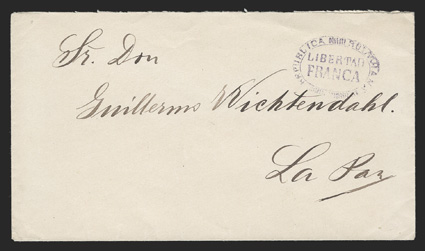 REPUBLICA
LIBERTAD
FRANCA
Sr. Don
Guillermo Wichtendahl.
La Paz